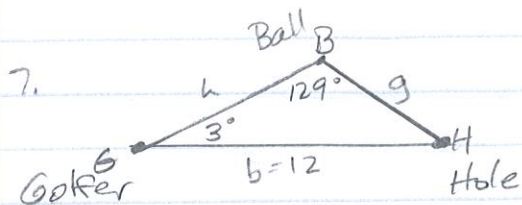 7.
Ball
B
h
129°
g
3°
G
b=12
H
Golfer
Hole